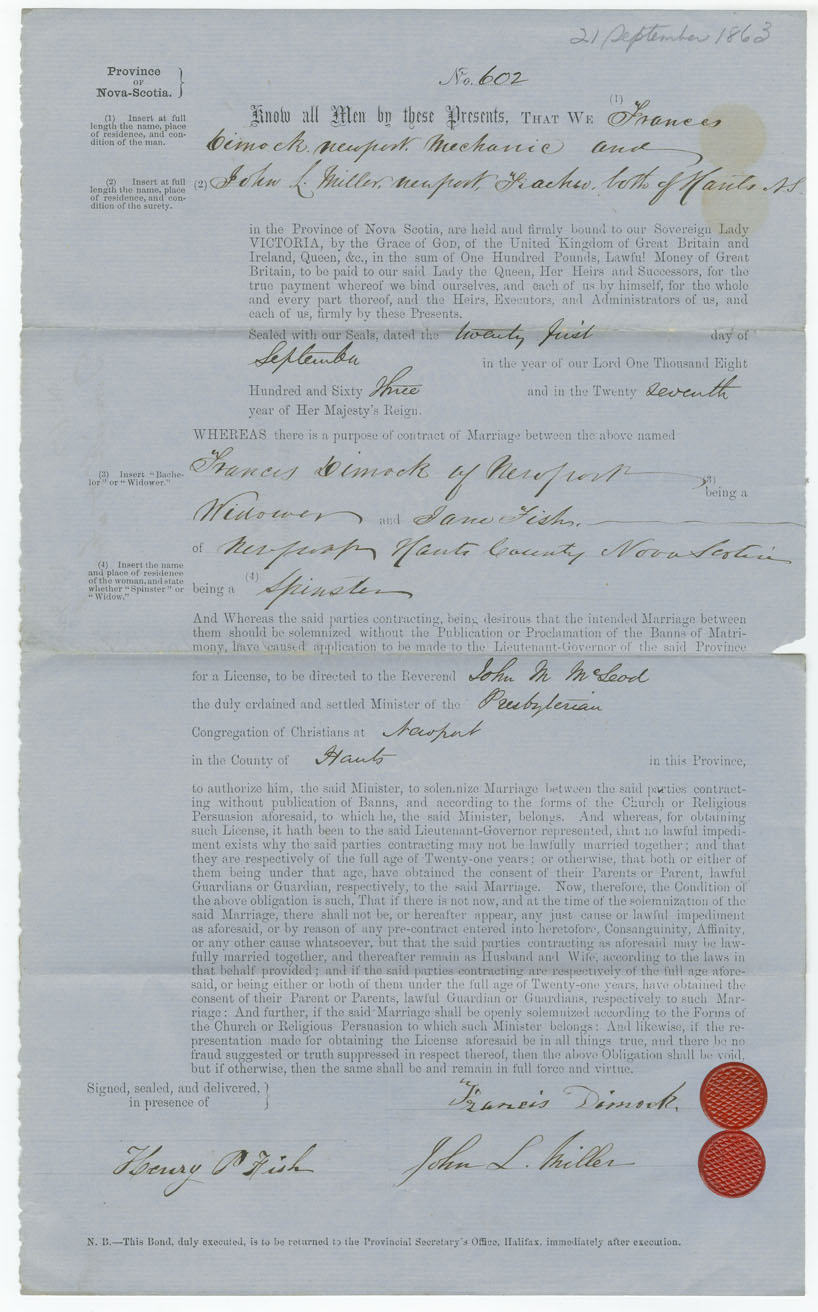 21 September 1863
Province
OF
Nova-Scotia.
No. 602
(1) Insert at full
length the name, place
of residence, and con-
dition of the man.
Know all Men by these Presents, THAT WE (1) Frances
Dimock. newport. Mechanic and
(2) Insert at full
length the name, place
of residence, and con-
dition of the surety.
(2) John L. Miller, newport, Teacher. both of Hants N.S.
in the Province of Nova Scotia, are held and firmly bound to our Sovereign Lady
VICTORIA, by the Grace of GOD, of the United Kingdom of Great Britain and
Ireland, Queen, &c., in the sum of One Hundred Pounds, Lawful Money of Great
Britain, to be paid to our said Lady the Queen, Her Heirs and Successors, for the
true payment whereof we bind ourselves, and each of us by himself, for the whole
and every part thereof, and the Heirs, Executors, and Administrators of us, and
each of us, firmly by these Presents.
Sealed with our Seals, dated the twenty first day of
September in the year of our Lord One Thousand Eight
Hundred and Sixty three and in the Twenty seventh
year of Her Majesty's Reign.
WHEREAS there is a purpose of contract of Marriage between the above named
(3) Insert "Bache-
lor" or "Widower."
Francis Dimock of Newport (3)
being a
Widower and Jane Fish.
of Newport Hants County Nova Scotia
(4) Insert the name
and place of residence
of the woman, and state
whether "Spinster" or
"Widow."
being a (4) Spinster
And Whereas the said parties contracting, being desirous that the intended Marriage between
them should be solemnized without the Publication or Proclamation of the Banns of Matri-
mony, have caused application to be made to the Lieutenant-Governor of the said Province
for a License, to be directed to the Reverend John M McLeod
the duly ordained and settled Minister of the Presbyterian
Congregation of Christians at Newport
in the County of Hants in this Province,
to authorize him, the said Minister, to solemnize Marriage between the said parties contract-
ing without publication of Banns, and according to the forms of the Church or Religious
Persuasion aforesaid, to which he, the said Minister, belongs. And whereas, for obtaining
such License, it hath been to the said Lieutenant-Governor represented, that no lawful impedi-
ment exists why the said parties contracting may not be lawfully married together; and that
they are respectively of the full age of Twenty-one years; or otherwise, that both or either of
them being under that age, have obtained the consent of their Parents or Parent, lawful
Guardians or Guardian, respectively, to the said Marriage. Now, therefore, the Condition of
the above obligation is such, That if there is not now, and at the time of the solemnization of the
said Marriage, there shall not be, or hereafter appear, any just cause or lawful impediment
as aforesaid, or by reason of any pre-contract entered into heretofore, Consanguinity, Affinity,
or any other cause whatsoever, but that the said parties contracting as aforesaid may be law-
fully married together, and thereafter remain as Husband and Wife, according to the laws in
that behalf provided; and if the said parties contracting are respectively of the full age afore-
said, or being either or both of them under the full age of Twenty-one years, have obtained the
consent of their Parent or Parents, lawful Guardian or Guardians, respectively to such Mar-
riage: And further, if the said Marriage shall be openly solemnized according to the Forms of
the Church or Religious Persuasion to which such Minister belongs: And likewise, if the re-
presentation made for obtaining the License aforesaid be in all things true, and there be no
fraud suggested or truth suppressed in respect thereof, then the above Obligation shall be void,
but if otherwise, then the same shall be and remain in full force and virtue.
Signed, sealed, and delivered,
in presence of
Francis Dimock.
Henry P Fish
John L. Miller
N. B.—This Bond, duly executed, is to be returned to the Provincial Secretary's Office, Halifax, immediately after execution.